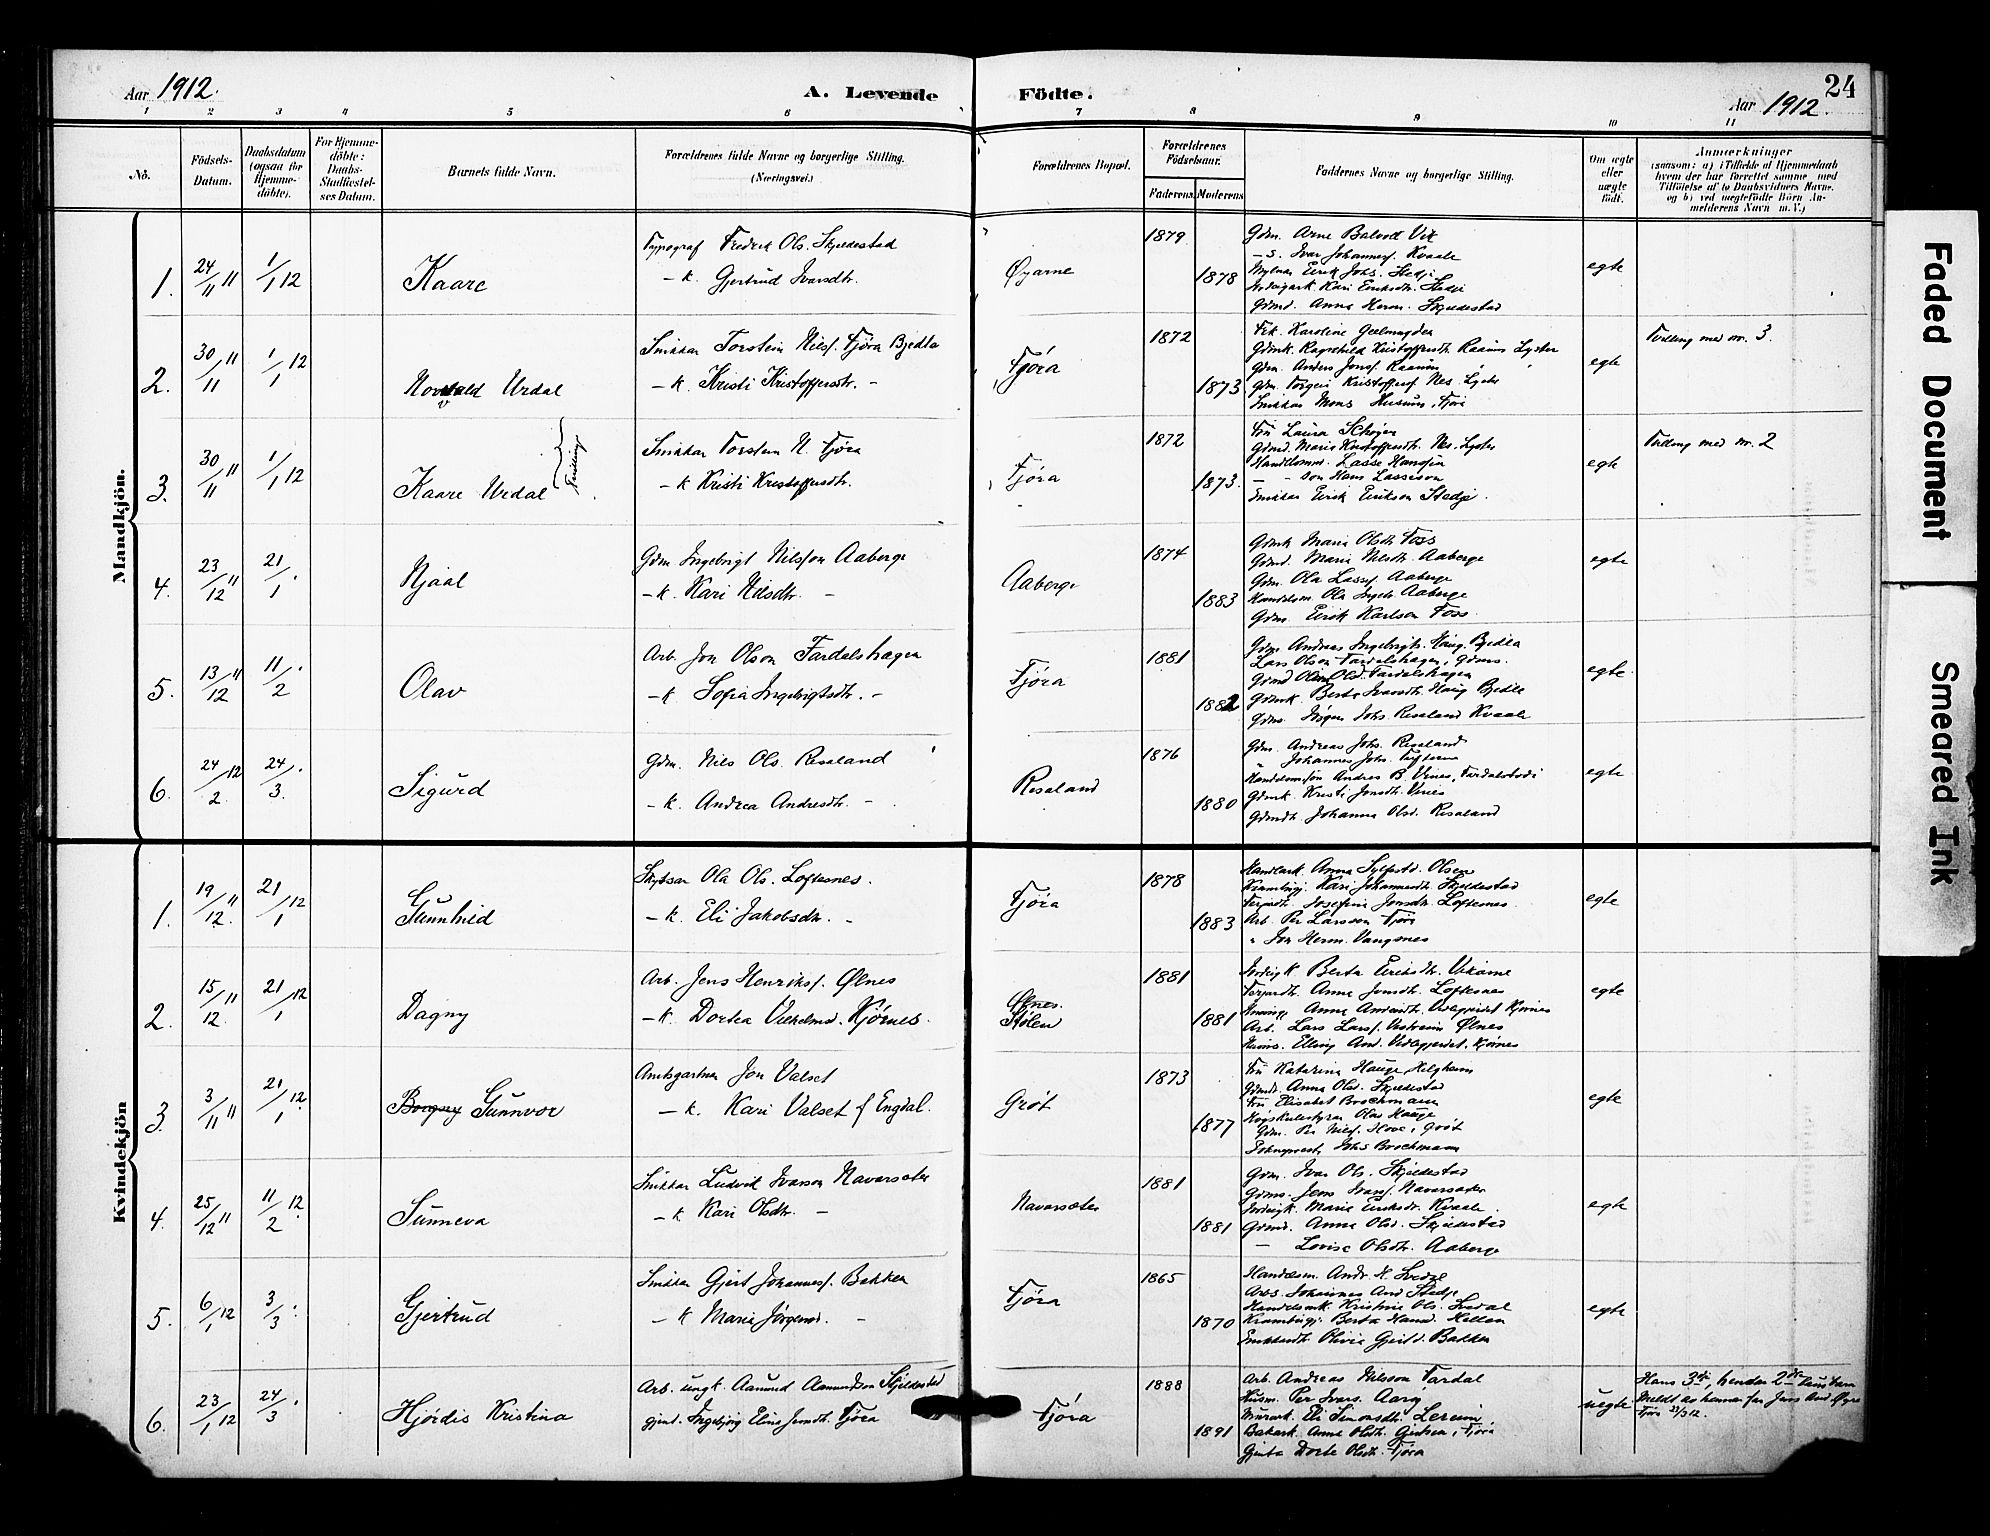 Aar 1912.
A. Levende Födte.
Aar 1912.
24
1 2 3 4 5 6 7 8 9 10 11
No.
Födsels-Datum.
Daabsdatum (ogsaa for Hjemme-döbte).
For Hjemme-döbte: Daabs-Stadfæstel-ses Datum.
Barnets fulde Navn.
Forældrenes fulde Navne og borgerlige Stilling. (Næringsvei.)
Forældrenes Bopæl.
Forældrenes Födselsaar.
Faderens. Moderens.
Faddernes Navne og borgerlige Stilling.
Om ægte eller uægte födt.
Anmærkninger
(saasom: a) i Tilfælde af Hjemmedaab
hvem der har forrettet samme med
Tilföielse af to Daabsvidners Navne.
og b) ved uægtefödte Börn An-
melderens Navn m. V.)
Mandkjön.
1. 24/11 11 1/1 12 Kaare
Typograf Fredrik Ols. Skjeldestad
- k. Gjertrud Ivarsdtr.
Øyarne
1879
1878
Gdm. Arne Balvoll Vik
- S. Ivar Johannesf. Kvaale
Eirik Johs. Stedje
Kari Eiriksdtr. Stedje
Gdmd. Anna Herm. Skjeldestad
egte
2. 30/11 11 1/1 12 Norvald Urdal
Snikkar Torstein Nilsf. Fjøra Bjedla
- k. Kristi Kristoffersdtr. -
Fjøra
1872
1873
Frk. Karoline Geelmuyden
Gdmk. Ragnhild Kristoffersdtr. Raaum Lyster
Gdm. Anders Jonsf. Raaum
Gdm. Torgeir Kristoffersf. Nes Lyster
Snikkar Mons Husum, Fjøra
egte
Tvilling med nr. 3.
3. 30/11 11 1/1 12 Kaare Urdal
Tvilling
Snikkar Torstein N. Fjøra
- k Kristi Kristoffersdtr.
Fjøra
1872
1873.
Fru Laura Schøyen
Gdmd. Maria Kristoffersdtr. Nes. Lyster
Handlsmm. Lasse Hansson
- - son Hans Lasseson
Snikkar Eirik Eirikson Stedje.
egte
Tvilling med nr. 2
4. 23/12 11 21/1 Njaal
Gdm Ingebrigt Nilsson Aaberge
- k. Kari Nilsdtr. -
Aaberge
1874
1883
Gdmk Maria Olsdtr. Foss
Gdmd. Marie Nilsdtr. Aaberge
Gdm. Ola Lassef. Aaberge
Handelsm. Ola Ingebr. Aaberge
Gdm. Eirik Karlson Foss.
egte
5. 13/12 11 11/2 Olav
Arb. Jon Olson Fardalshagen
- k Sofia Ingebrigtsdtr. -
Fjøra
1881
1882
Gdm Andreas Ingebrigts. Haug. Bjedla
Lars Olson Fardalshagen, Gdms.
Gdmd Olina Olsd. Fardalshagen
Gdmk. Berta Ivarsdtr. Haug Bjedla
Gdms. Jørgen Johs. Reseland Kvaale
egte.
6. 24/2 12 24/3. Sigurd
Gdm. Nils Ols. Reseland
- k. Andrea Andresdtr. -
Reseland
1876
1880
Gdm. Andreas Johs. Reseland
" Johannes Johs.
Handelsmson Andres B. Vines, Fardalsbodi
Gdmk. Kristi Jonsdtr. Vines
Gdmdtr. Johanna Olsd. Reseland
egte
Kvindekjön
1. 19/12 11 21/1 12 Gunnhild
Skytsar Ola Ols. Loftesnes.
- k. Eli Jakobsdtr. -
Fjøra
1878
1883
Handlark. Anna Sylfestd. Olsen
Krambugj. Kari Johannesdtr. Skjeldestad
Josefine Jonsdtr. Loftesnes
Arb. Per Larsson Fjøra
" Jon Herm. Vangsnes
egte
2. 15/12 11 21/1 12 Dagny
Arb. Jens Henriksf. Ølnes
- k. Dortea Vilhelmsd. Kjørnes.
Ølnes. Stølen
1881
1881
Berta Eiriksdtr. Vikane
Anna Jonsdtr. Loftesnes
Anna Andersdtr. Vidlegjerdet Kjørnes
Arb. Lars Larsf. Vestreim Ølnes
Husms. Elling And. Vidlegjerdet, Kjørnes
egte
3. 3/11 11 21/1 12 Borgny Gunnvor
Amtsgartner Jon Valset
- k. Kari Valset f. Engdal.
Grøt
1873
1877
Fru Katarina Hauge Helgheim
Gdmd. Anna Olsd. Skjeldestad
Fru Elisabet Brochmann
Høgskulestyrar Olav Hauge
Gdm. Per Nilsf. Hove, Grøt
Sokneprest Johs Brochmann
egte
4. 25/12 11 11/2 12 Sunneva
Snikkar Ludvik Ivarson Navarsete
- k Kari Olsdtr. -
Navarsete
1881
1881
Gdm. Ivar Ols. Skjeldestad
Gdms. Jens Ivarsf. Navarsete
Marie Eiriksdtr. Kvaale.
Gdmd. Anna Olsd. Skjeldestad
- Lovise Olsdtr. Aaberge
egte
5. 6/1 12 3/3. Gjertrud
Snikkar Gjert Johannesf. Bakken
- k Maria Jørgensd. -
Fjøra
1865
1870
Handelsm. Andr. H. Svedal
Arb. Johannes And Stedje
Handelsmk. Kristine Ols. Svedal
Krambugj. Berta Hansd. Hellen
Snikkardtr. Olivia Gjertd. Bakken
egte
6. 23/1 12 24/3. Hjørdis Kristina
Arb. ungk. Aamund Aamundson Skjeldestad
gjent. Ingebjørg Elina Jensdtr. Fjøra
Fjøra
1888
1891
Arb. Andreas Nilsson Fardal
Husm. Per Ivars. Aarøy
Murark. Eli Simonsdtr. Lereim
Bakark. Anna Olsdtr. Fjøra
Gjenta Dorte Olsdtr. Fjøra
uegte
Hans 3dje, hendar 2dre lausbarn
Meldt av hennar far Jens And Øyre
Fjøra 23/3 12.
Faded Document
Smeared Ink